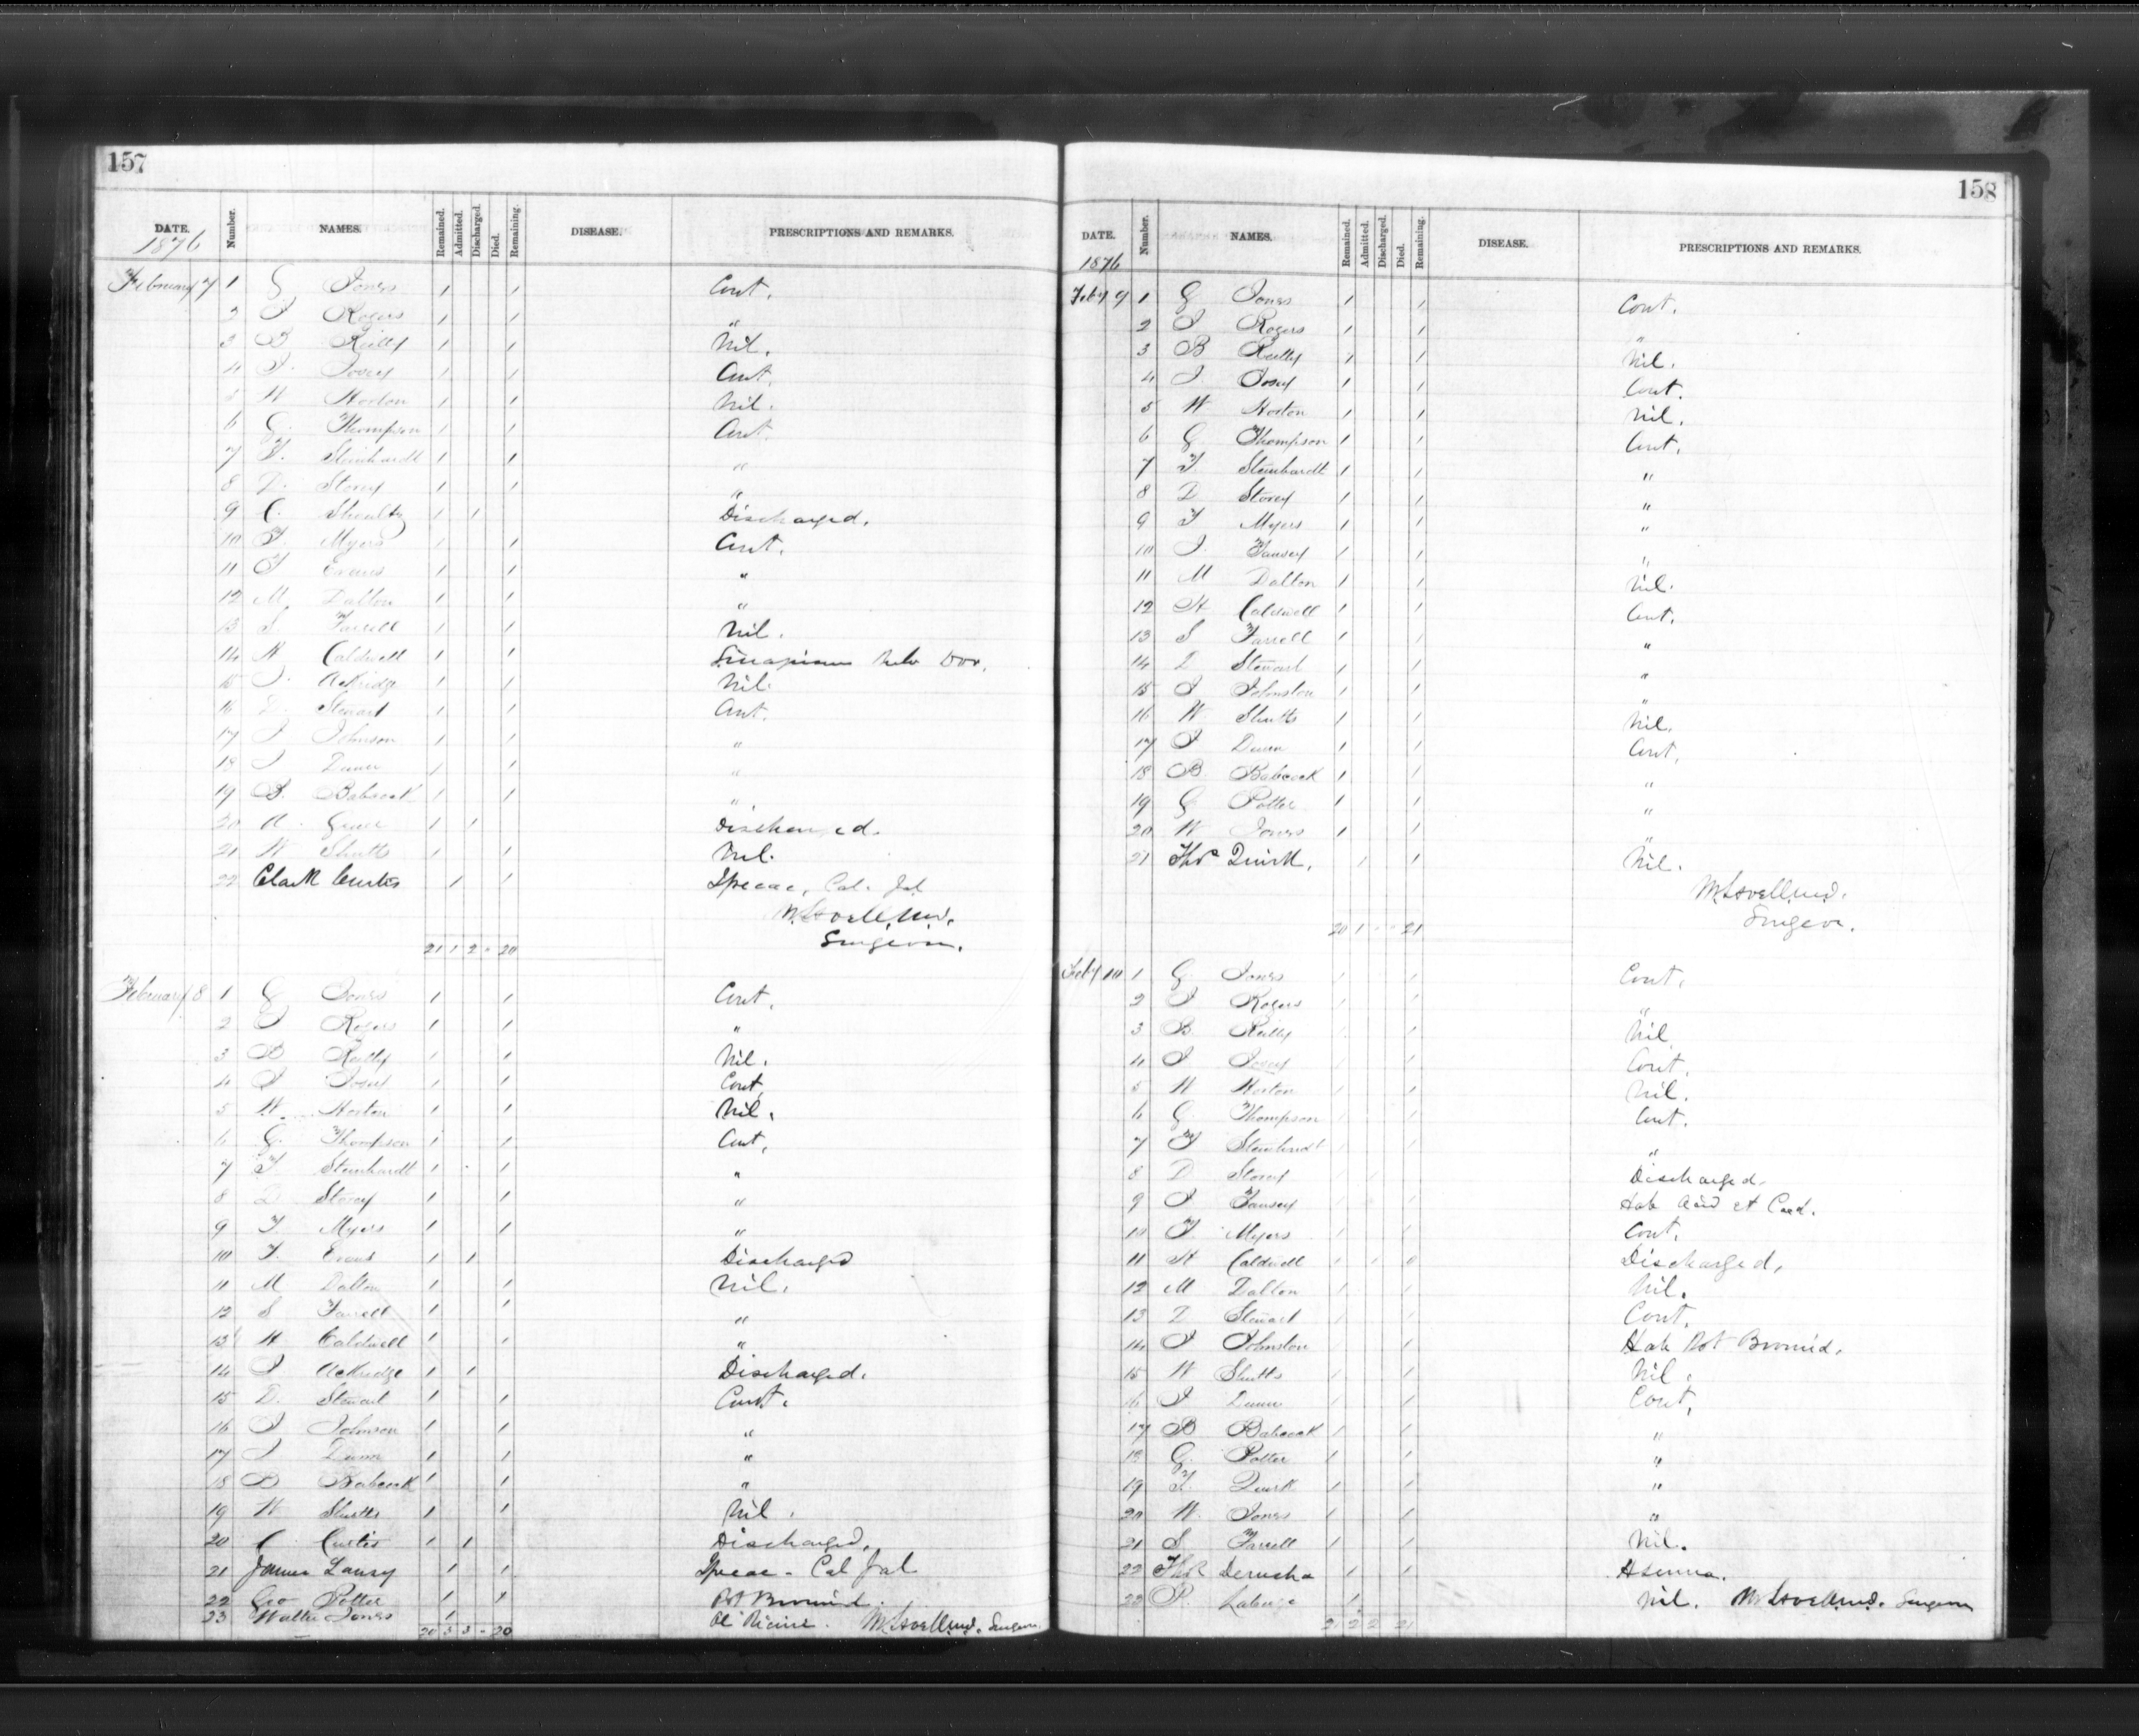 157
DATE. Number. NAMES. Remained. Admitted. Discharged. Died. Remaining. DISEASE. PRESCRIPTIONS AND REMARKS.
1876
February 7 1 G Jones 1 1 Cont.
2 J Rogers 1 1 "
3 B Reilly 1 1 Nil.
4 J. 1 1 Cont.
5 W Horton 1 1 Nil.
6 G. Thompson 1 1 Cont.
7 F. Steinhardt 1 1 "
8 D. Storey 1 1 "
9 C. Shoultz 1 1 Discharged.
10 F. Myers 1 1 Cont.
11 T Evans 1 1 "
12 M Dalton 1 1 "
13 S Farrell 1 1 Nil.
14 H Caldwell 1 1 Dov.
15 J. 1 1 Nil.
16 D. Stewart 1 1 Cont.
17 J Johnson 1 1 "
18 J Dunn 1 1 "
19 B. Babcock 1 1 "
20 A. 1 1 Discharged.
21 W Shutts 1 1 Nil.
22 Clark Curtis 1 1 Ipecac, Cal. Jal
M Lavell M.D.
Surgeon.
21 1 2 - 20
February 8 1 G Jones 1 1 Cont.
2 J Rogers 1 1 "
3 B Reilly 1 1 Nil.
4 J 1 1 Cont
5 W. Horton 1 1 Nil.
6 G. Thompson 1 1 Cont.
7 F Steinhardt 1 1 "
8 D Storey 1 1 "
9 F Myers 1 1 "
10 T. Evans 1 1 Discharged
11 M Dalton 1 1 Nil.
12 S Farrell 1 1 "
13 H Caldwell 1 1 "
14 J 1 1 Discharged.
15 D. Stewart 1 1 Cont.
16 J Johnson 1 1 "
17 J. Dunn 1 1 "
18 B Babcock 1 1 "
19 W Shutts 1 1 Nil.
20 C Curtis 1 1 Discharged.
21 James 1 1 Ipecac - Cal Jal
22 Geo Potter 1 1 Pot Bromid.
23 Walter Jones 1 Ol Ricini. M Lavell M.D. Surgeon
20 3 3 - 20
158
DATE. Number. NAMES. Remained. Admitted. Discharged. Died. Remaining. DISEASE. PRESCRIPTIONS AND REMARKS.
1876
Feby 9 1 G Jones 1 1 Cont.
2 J Rogers 1 1 "
3 B Reilly 1 1 Nil.
4 J 1 1 Cont.
5 W Horton 1 1 Nil.
6 G Thompson 1 1 Cont.
7 F. Steinhardt 1 1 "
8 D Storey 1 1 "
9 F Myers 1 1 "
10 J. 1 1 "
11 M Dalton 1 1 Nil.
12 H Caldwell 1 1 Cont.
13 S Farrell 1 1 "
14 D Stewart 1 1 "
15 J Johnston 1 1 "
16 W. Shutts 1 1 Nil.
17 J Dunn 1 1 Cont.
18 B. Babcock 1 1 "
19 G Potter 1 1 "
20 W Jones 1 1 "
21 Thos Quirk. 1 1 Nil.
M Lavell M.D.
Surgeon.
20 1 - - 21
Feby 10 1 G. Jones 1 1 Cont.
2 J Rogers 1 1 "
3 B. Reilly 1 1 Nil
4 J 1 1 Cont.
5 W Horton 1 1 Nil.
6 G. Thompson 1 1 Cont.
7 F Steinhardt 1 1 "
8 D Storey 1 1 Discharged.
9 J 1 1
10 F Myers 1 1 Cont.
11 H Caldwell 1 1 0 Discharged.
12 M Dalton 1 1 Nil.
13 D. Stewart 1 1 Cont.
14 J Johnston 1 1 Hab Pot Bromid.
15 W Shutts 1 1 Nil.
16 J Dunn 1 1 Cont.
17 B Babcock 1 1 "
18 G. Potter 1 1 "
19 T. Quirk 1 1 "
20 W. Jones 1 1 "
21 S. Farrell 1 1 Nil.
22 Thos Derusha 1 1
23 P. 1 Nil. M Lavell M.D. Surgeon
21 2 2 21